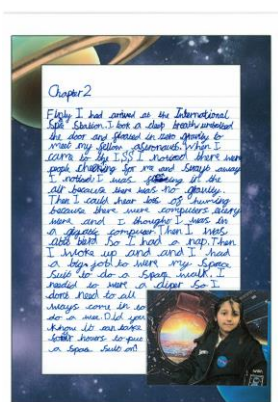 Chapter 2
I had arrived at the International
Station. I took a deep breath unbolted
the door and floated in zero gravity to
meet my fellow astronauts. When I
came to the ISS I noticed there were
people for me and away
I noticed I was in the
air because there was no gravity.
Then I could hear lots of
because there were computers every
were and I thought I was in
a computer. Then I was
so I had a nap. Then
I woke up and and I had
a big job to were my Space
Suit to do a Space walk. I
needid to were a so I
dont need to all
ways come in to
do a wee. Did you
know it can take
hours to put
a Space suit on!
NASA